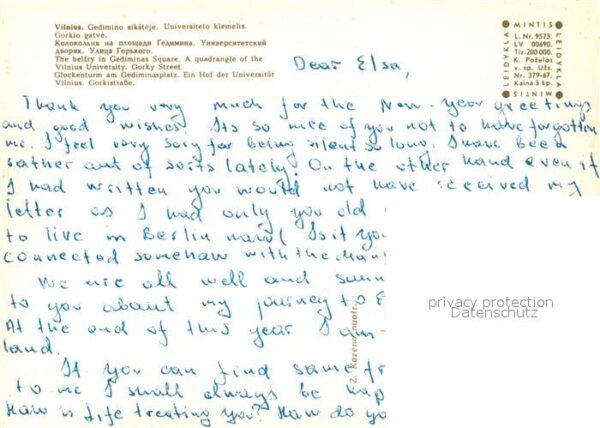 Vilnius. Gedimino aikštėje. Universiteto kiemelis.
Gorkio gatvė.
Колокольня на площади Гедимина. Университетский
дворик. Улица Горького.
The belfry in Gediminas Square. A quadrangle of the
Vilnius University. Gorky Street.
Glockenturm am Gediminasplatz. Ein Hof der Universität
Vilnius. Gorkistraße.
MINTIS
LEIDYKLA
L. Nr. 9573.
LV 00690.
Tir. 200.000
K. Poželos
v. sp. Užs.
Nr. 379-67.
Kaina 3 kp.
MINTIS
LEIDYKLA
Dear Elsa,
Thank you very much for the New-year greetings
and good wishes! Its so nice of you not to have forgotten
me. I feel very sory for being silent so long. I have been
rather out of sorts lately. On the other hand even if
I had written you would not have received my
letter as I had only you old
to live in Berlin now! Is it yo
connected somehow with the
We are all well and
to you about my journey to
At the end of this year I am
land.
If you can find some
to me I shall always be
How is life treating you? How do yo
Z. Kazėno nuotr.
privacy protection
Datenschutz